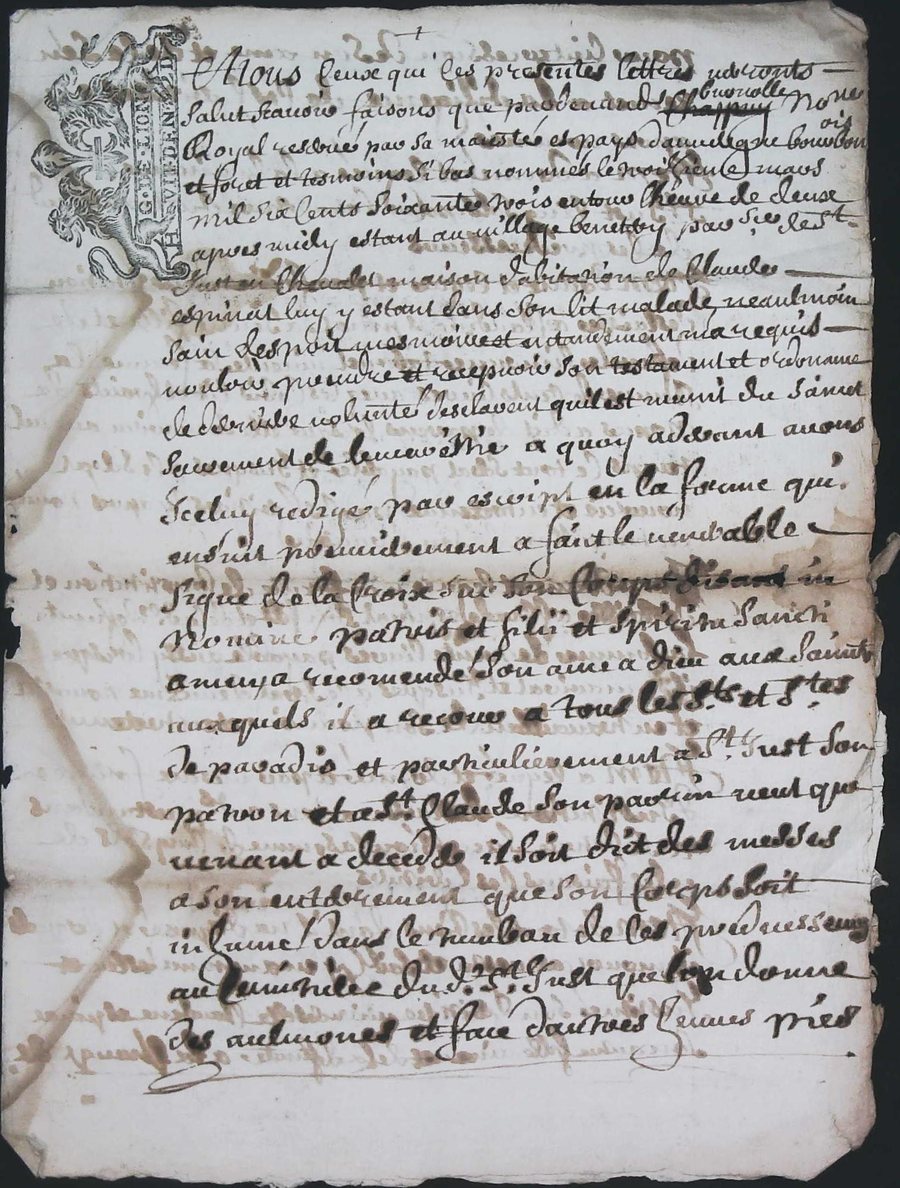 G. DE. LION
HVIT. DEN
A tous Ceux qui Ces presentes lettres verronts
Salut Scavoir faisons que pardevand Chappuy brerolle No.re
Royal reservé par sa maiesté es pays dauvergne bourbonois
et foret et tesmoins Si bas nommés le troisieme mars
mil six Cents soixante trois entour Lheure de deux
apres midy estant au village benettoy par.sse de St
Just en Chevalet maison dabitation de Claude
espinat luy y estant dans son lit malade neaulmoin
Sain desprit mesmoire et entandement ma requis
vouloir prendre et recepvoir son testament et ordonanse
de derniere volunté desclarent quil est munit du Sainct
Sacrement de leucarestie a quoy adserant avons
Iceluy redigé par escript en la forme qui
ensuit premierement a faict le venerable
Signe de la Croix sur son Corps disant in
Nomine patris et filii et spiritu Sancti
amen a recomendé son ame a dieu aux Saints
auxquels il a recours a tous les S.ts et S.tes
de paradis et particulierement a S.t Just son
patron et a S.t Claude son parrin veut que
venant a decede il soit dict des messes
a son enterement que son Corps soit
inhumé dans le tumbau de ces predecesseurs
au Cimitiere dud. S.t Just que lon donne
des aulmones et face dautres bonnes prieres